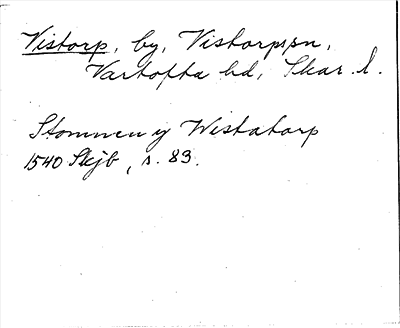 Vistorp, by, Vistorpspn,
Vartofta hd, Skar. l.
Stommen y Wistatorp
1540 Skjb, s. 83.